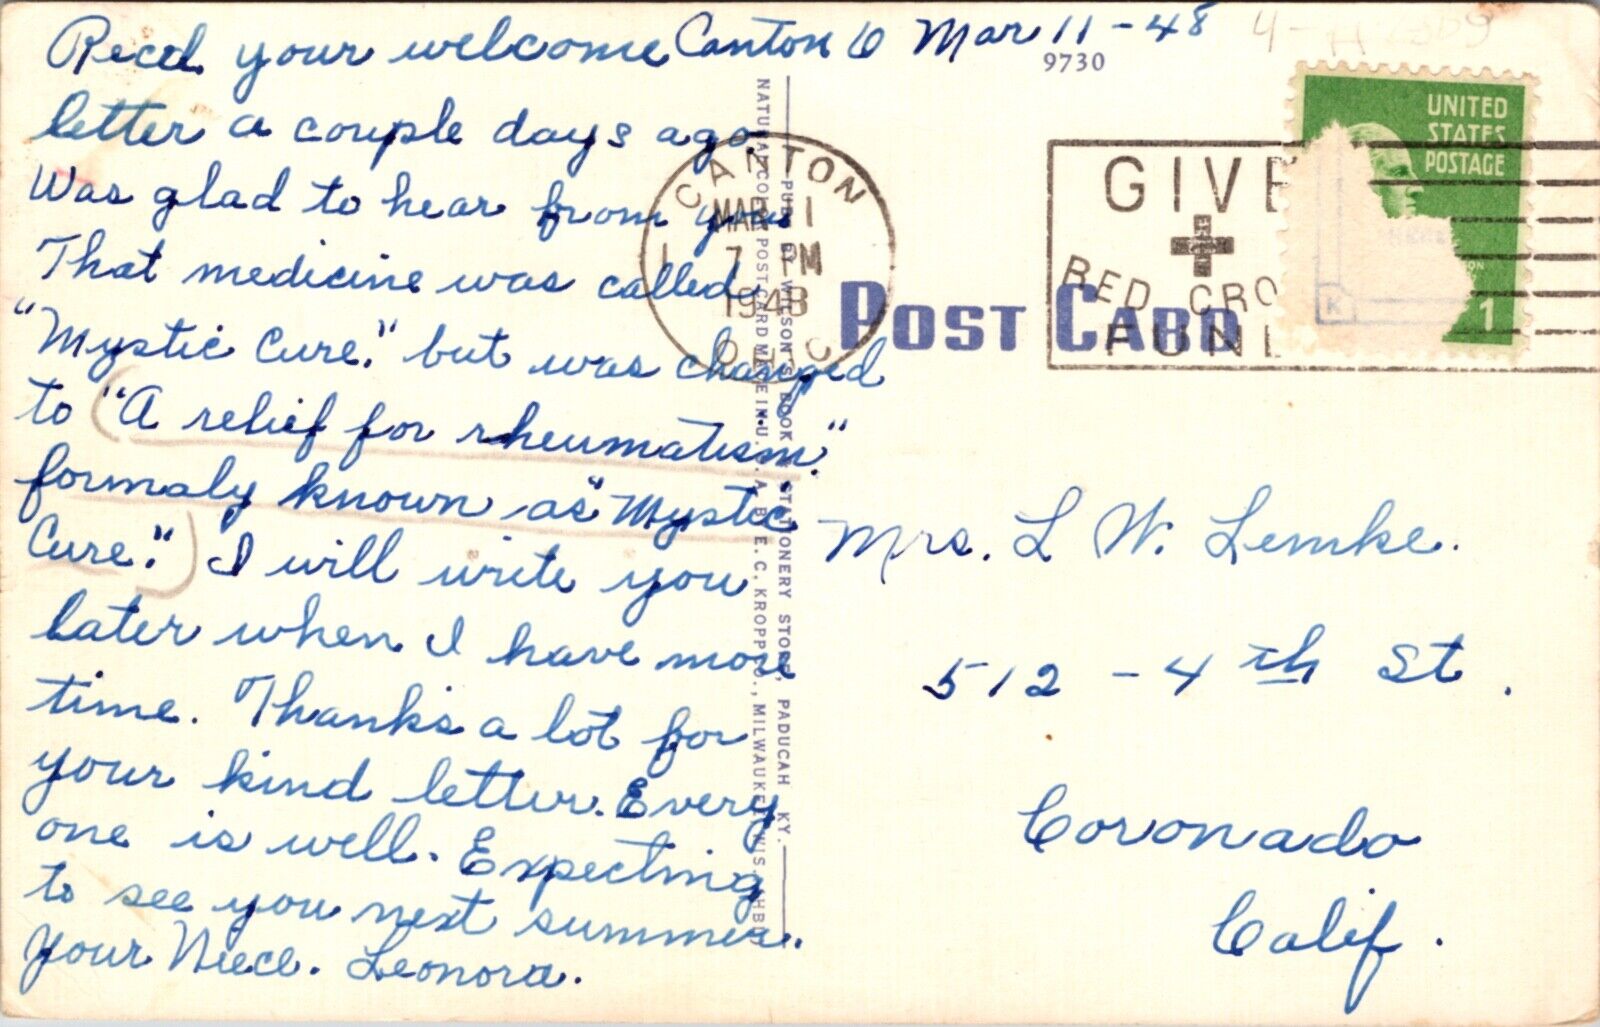 Canton O Mar 11-48
Recd your welcome
letter a couple days ago.
Was glad to hear from you
That medicine was called
"Mystic Cure." but was changed
to "A relief for rheumatism."
formaly known as "Mystic
Cure." I will write you
later when I have more
time. Thanks a lot for
your kind letter. Every
one is well. Expecting
to see you next summer.
Your Niece. Leonora.
9730
POST CARD
CANTON
MAR 11
7 PM
1948
OHIO
GIVE
RED CRO
FUN
UNITED
STATES
POSTAGE
1
K
PUB. BY WILSON'S BOOK & STATIONERY STORE, PADUCAH, KY.
NATURAL COLOR POST CARD MADE IN U. S. A. BY E. C. KROPP CO., MILWAUKEE, WIS.
Mrs. L W. Lemke.
512 - 4th St.
Coronado
Calif.